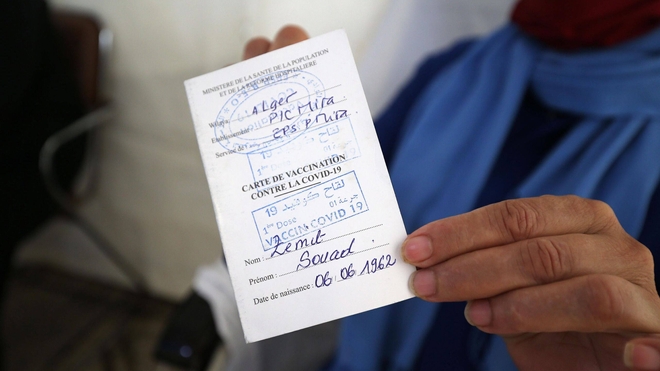 MINISTERE DE LA SANTE DE LA POPULATION
ET DE LA REFORME HOSPITALIERE
Wilaya Alger
Etablissement PIC Mira
Service de l' EPS P Mira
لقاح
CARTE DE VACCINATION
CONTRE LA COVID-19
لقاح كوفيد 19
1ère Dose جرعة 01
VACCIN COVID 19
Nom : Zemit
Prénom : Souad
Date de naissance : 06.06 1962